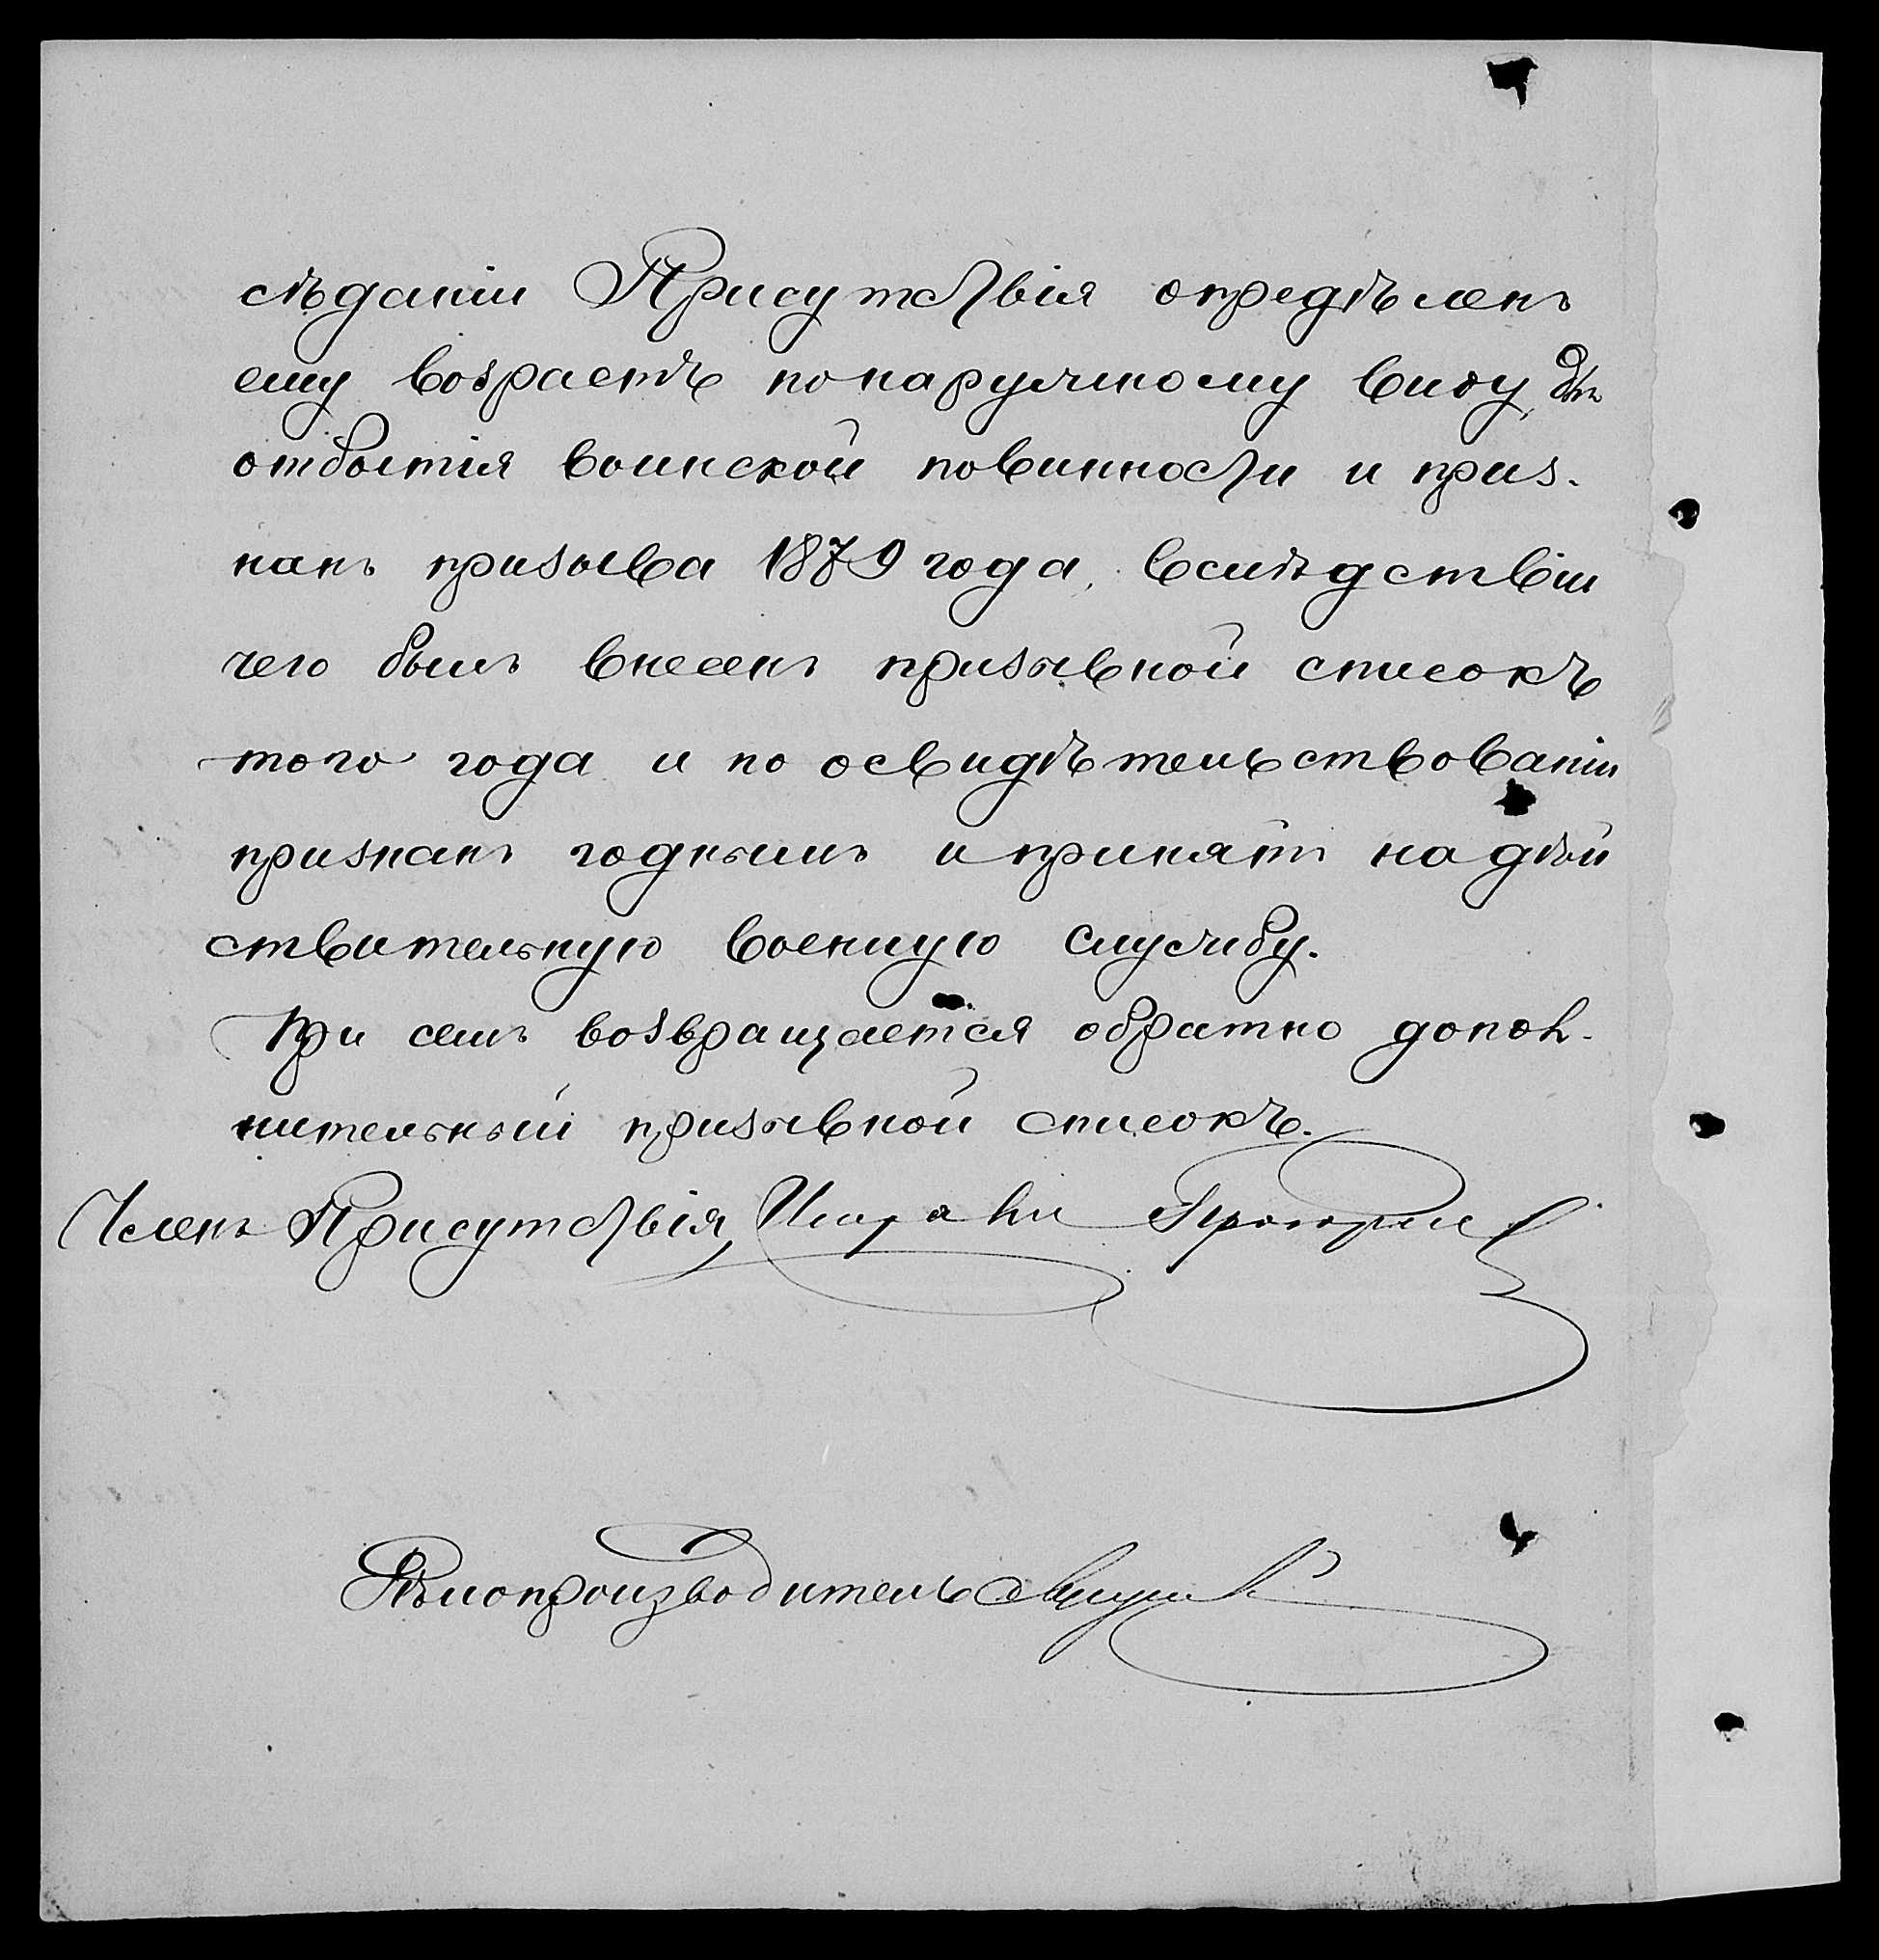 сѣданіи Присутствія опредѣленъ
ему возрастъ по наружному виду, для
отбытія воинской повинности и приз-
нанъ призыва 1879 года, вслѣдствіи
чего былъ внесенъ призывной списокъ
того года и по освидѣтельствованіи
признанъ годнымъ и принятъ на дѣй
ствительную военную службу.
При семъ возвращается обратно допол-
нительный призывной списокъ.
Членъ Присутствія,
Дѣлопроизводитель